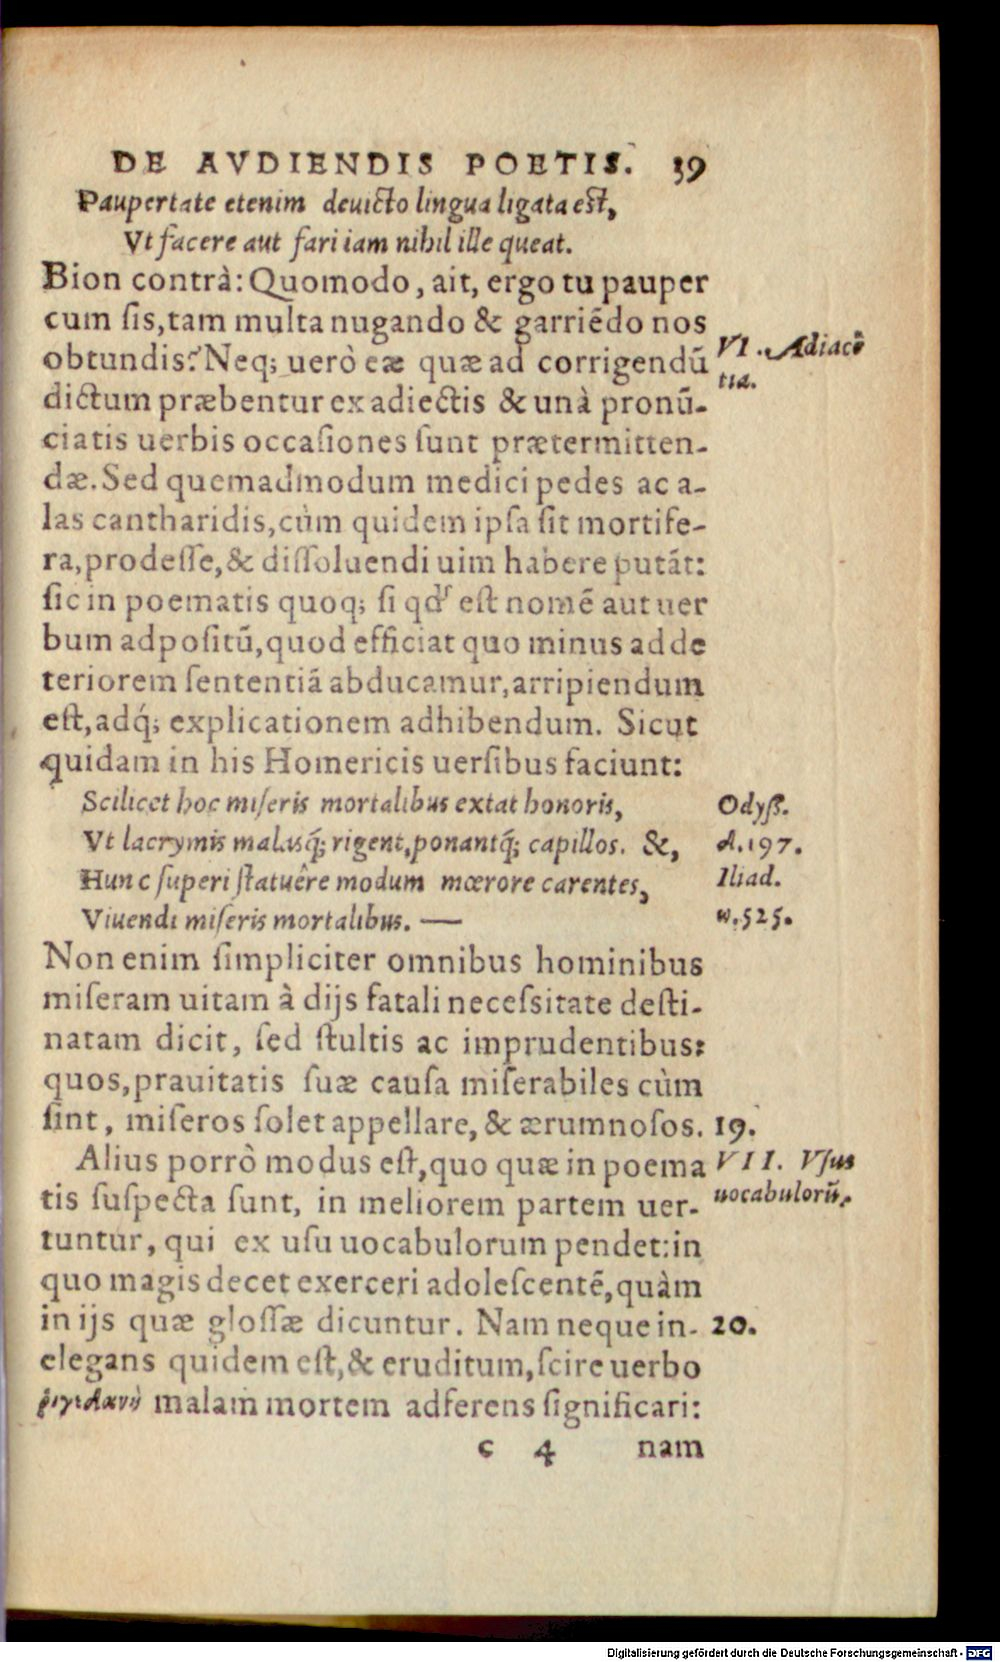 DE AVDIENDIS POETIS. 39
Paupertate etenim deuicto lingua ligata est,
Vt facere aut fari iam nihil ille queat.
Bion contrà: Quomodo, ait, ergo tu pauper
cum ſis, tam multa nugando & garriēdo nos
obtundis? Neq; uerò eæ quæ ad corrigendū
dictum præbentur ex adiectis & unà pronū-
ciatis uerbis occaſiones ſunt prætermitten-
dæ. Sed quemadmodum medici pedes ac a-
las cantharidis, cùm quidem ipſa ſit mortife-
ra, prodeſſe, & diſſoluendi uim habere putāt:
ſic in poematis quoq; ſi qd' est nomē aut uer
bum adpoſitū, quod efficiat quo minus ad de
teriorem ſententiā abducamur, arripiendum
eſt, adq́; explicationem adhibendum. Sicut
quidam in his Homericis uerſibus faciunt:
Scilicet hoc miſeris mortalibus extat honoris,
Vt lacrymis malasq́; rigent, ponantq́; capillos. &,
Hunc ſuperi ſtatuêre modum mœrore carentes,
Viuendi miſeris mortalibus. —
Non enim ſimpliciter omnibus hominibus
miſeram uitam à dijs fatali neceſsitate deſti-
natam dicit, ſed ſtultis ac imprudentibus:
quos, prauitatis ſuæ cauſa miſerabiles cùm
ſint, miſeros ſolet appellare, & ærumnoſos.
Alius porrò modus eſt, quo quæ in poema
tis ſuſpecta ſunt, in meliorem partem uer-
tuntur, qui ex uſu uocabulorum pendet: in
quo magis decet exerceri adoleſcentē, quàm
in ijs quæ gloſſæ dicuntur. Nam neque in-
elegans quidem eſt, & eruditum, ſcire uerbo
ῥιγεδανῆ malam mortem adferens ſignificari:
c 4 nam
VI. Adiacē
tia.
Odyſſ.
δ.197.
Iliad.
ω.525.
19.
VII. Vſus
uocabulorū.
20.
Digitalisierung gefördert durch die Deutsche Forschungsgemeinschaft - DFG